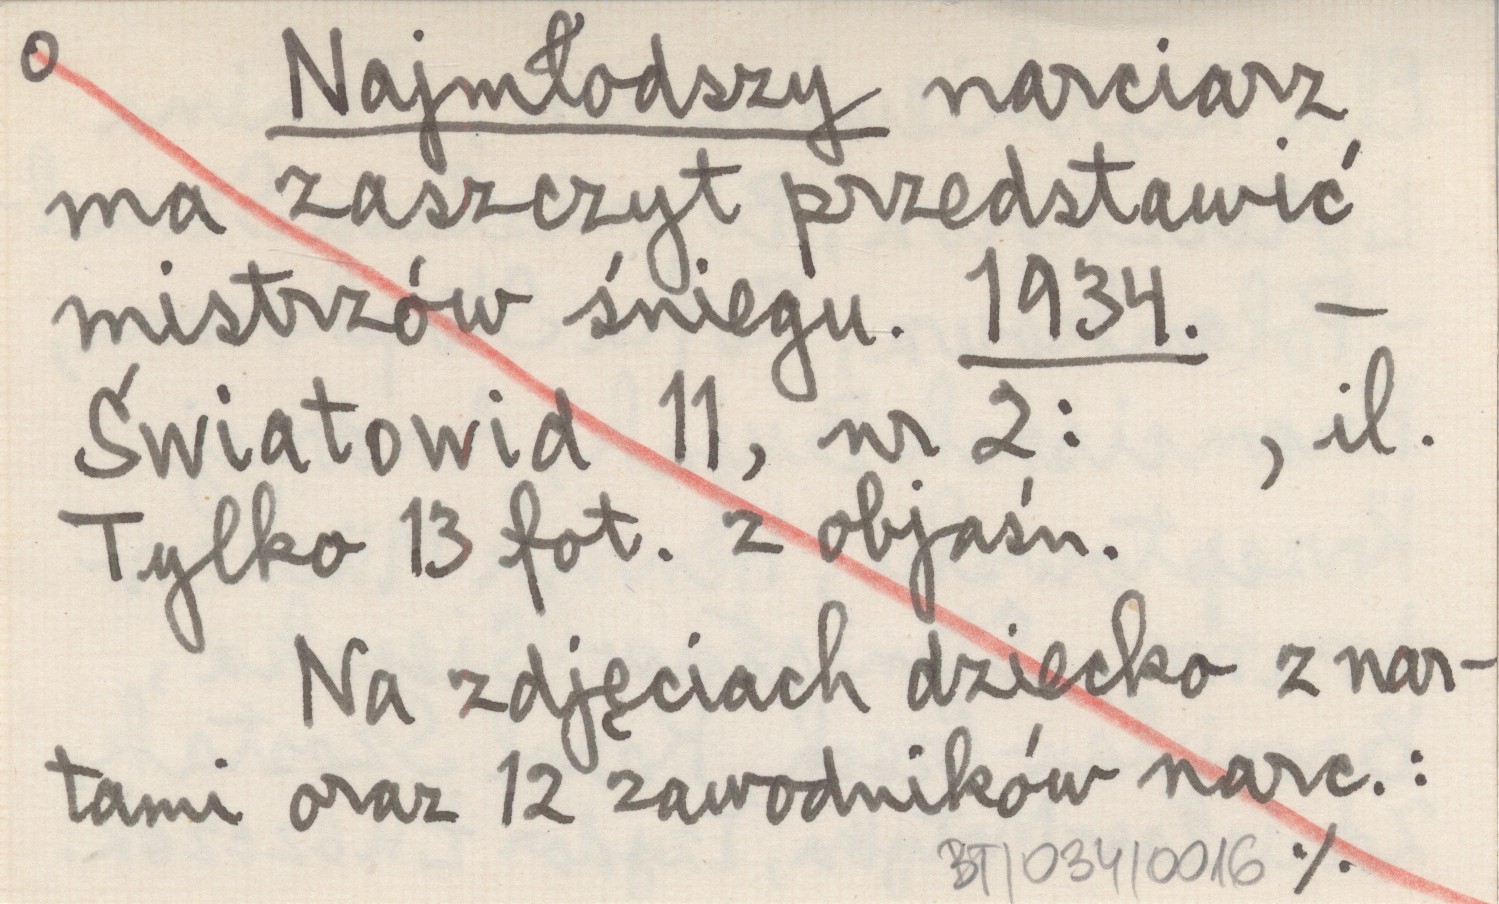 o Najmłodszy narciarz
ma zaszczyt przedstawić
mistrzów śniegu. 1934. —
Światowid 11, nr 2: , il.
Tylko 13 fot. z objaśn.
Na zdjęciach dziecko z nar-
tami oraz 12 zawodników narc.:
BT/034/0016 ./.